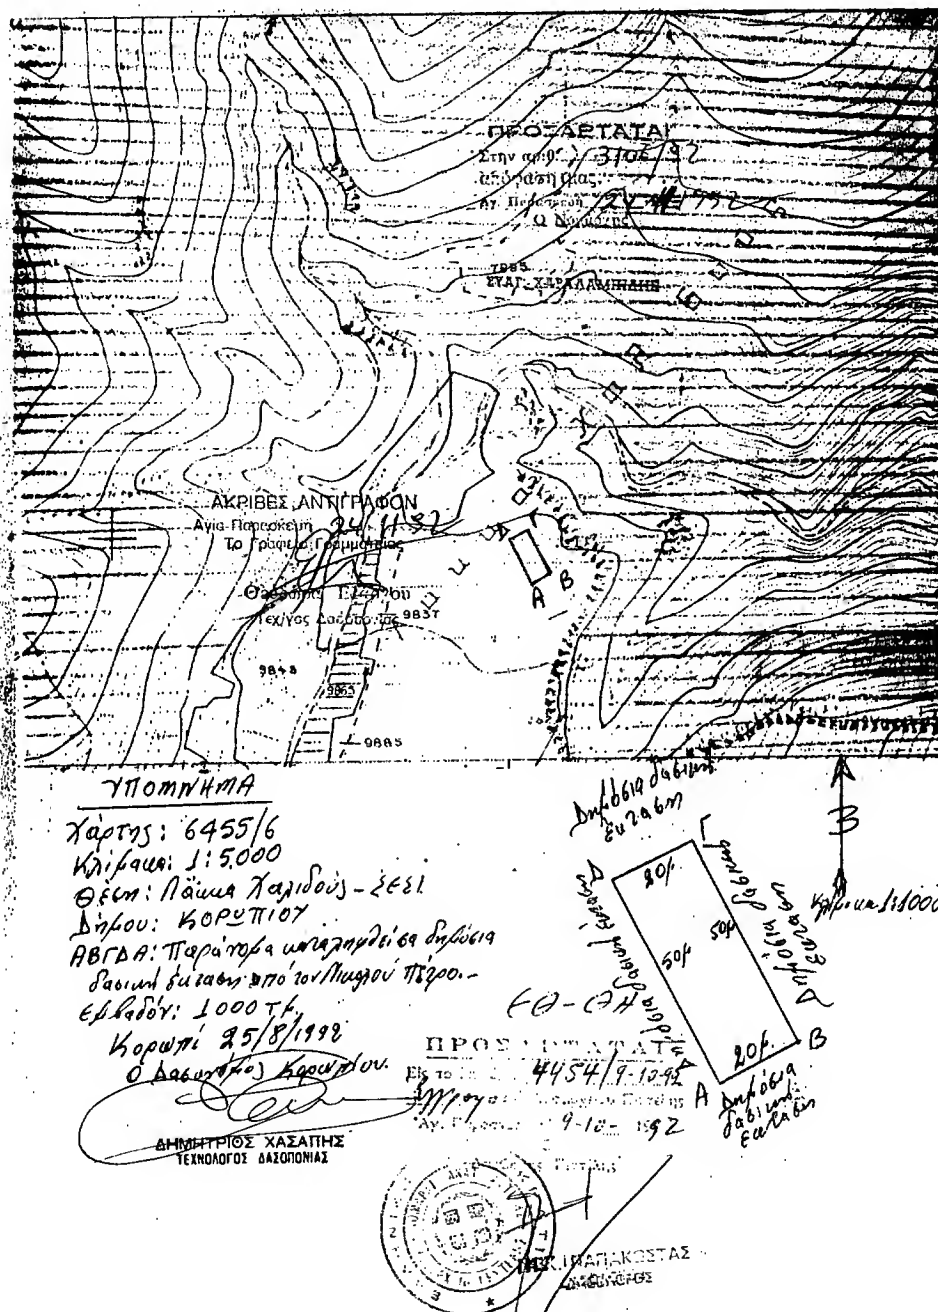 ΠΡΟΣΑΡΤΑΤΑΙ
Στην αριθ.
απόφαση μας
Αγ. Παρασκευή 1992
Ο Νομάρχης
7985
ΕΥΑΓ. ΧΑΡΑΛΑΜΠΙΔΗΣ
ΑΚΡΙΒΕΣ ΑΝΤΙΓΡΑΦΟΝ
Αγία Παρασκευή 24/11/92
Το Γραφείο Γραμματείας
9837
9848
9863
9885
Δ Γ
Α Β
ΥΠΟΜΝΗΜΑ
Χάρτης: 6455/6
Κλίμακα: 1:5.000
Θέση: Λάκκα Χαλιδούς - ΣΕΣΙ
Δήμου: ΚΟΡΩΠΙΟΥ
ΑΒΓΔΑ: Παράνομα καταληφθείσα δημόσια
δασική έκταση από τον Πέτρο.-
Εμβαδόν: 1000 τμ.
Κορωπί 25/8/1992
Ο Δασονόμος Κορωπίου.
ΔΗΜΗΤΡΙΟΣ ΧΑΣΑΠΗΣ
ΤΕΧΝΟΛΟΓΟΣ ΔΑΣΟΠΟΝΙΑΣ
Δημόσια δασική
έκταση
Δ
Γ
20μ.
50μ
50μ
Δημόσια δασική έκταση
Δημόσια δασική
έκταση
20μ.
Α
Β
Δημόσια
δασική
έκταση
Β
Κλίμακα 1:1000
ΠΡΟΣΑΡΤΑΤΑΙ
4454/9-10-92
9-10- 1992
ΠΑΠΑΚΩΣΤΑΣ
ΔΑΣΟΛΟΓΟΣ